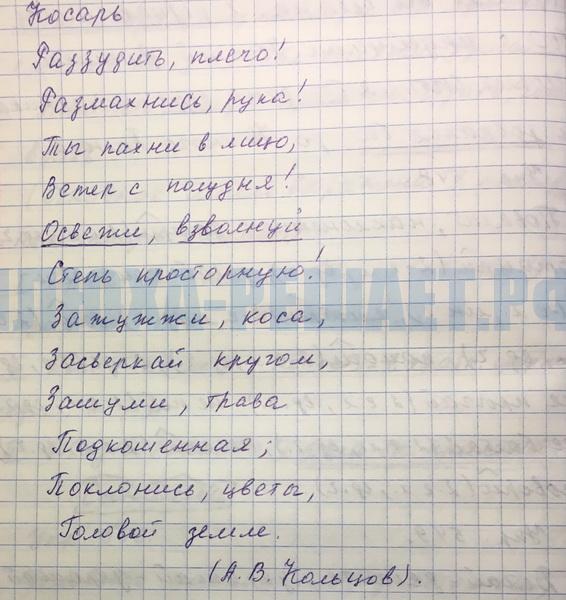 Косарь
Раззудить, плечо!
Размахнись, рука!
Ты пахни в лицо,
Ветер с полудня!
Освежи, взволнуй
Степь просторную!
Зажужжи, коса,
Засверкай кругом,
Зашуми, трава
Подкошенная;
Поклонись, цветы,
Головой земле.
(А. В. Кольцов).